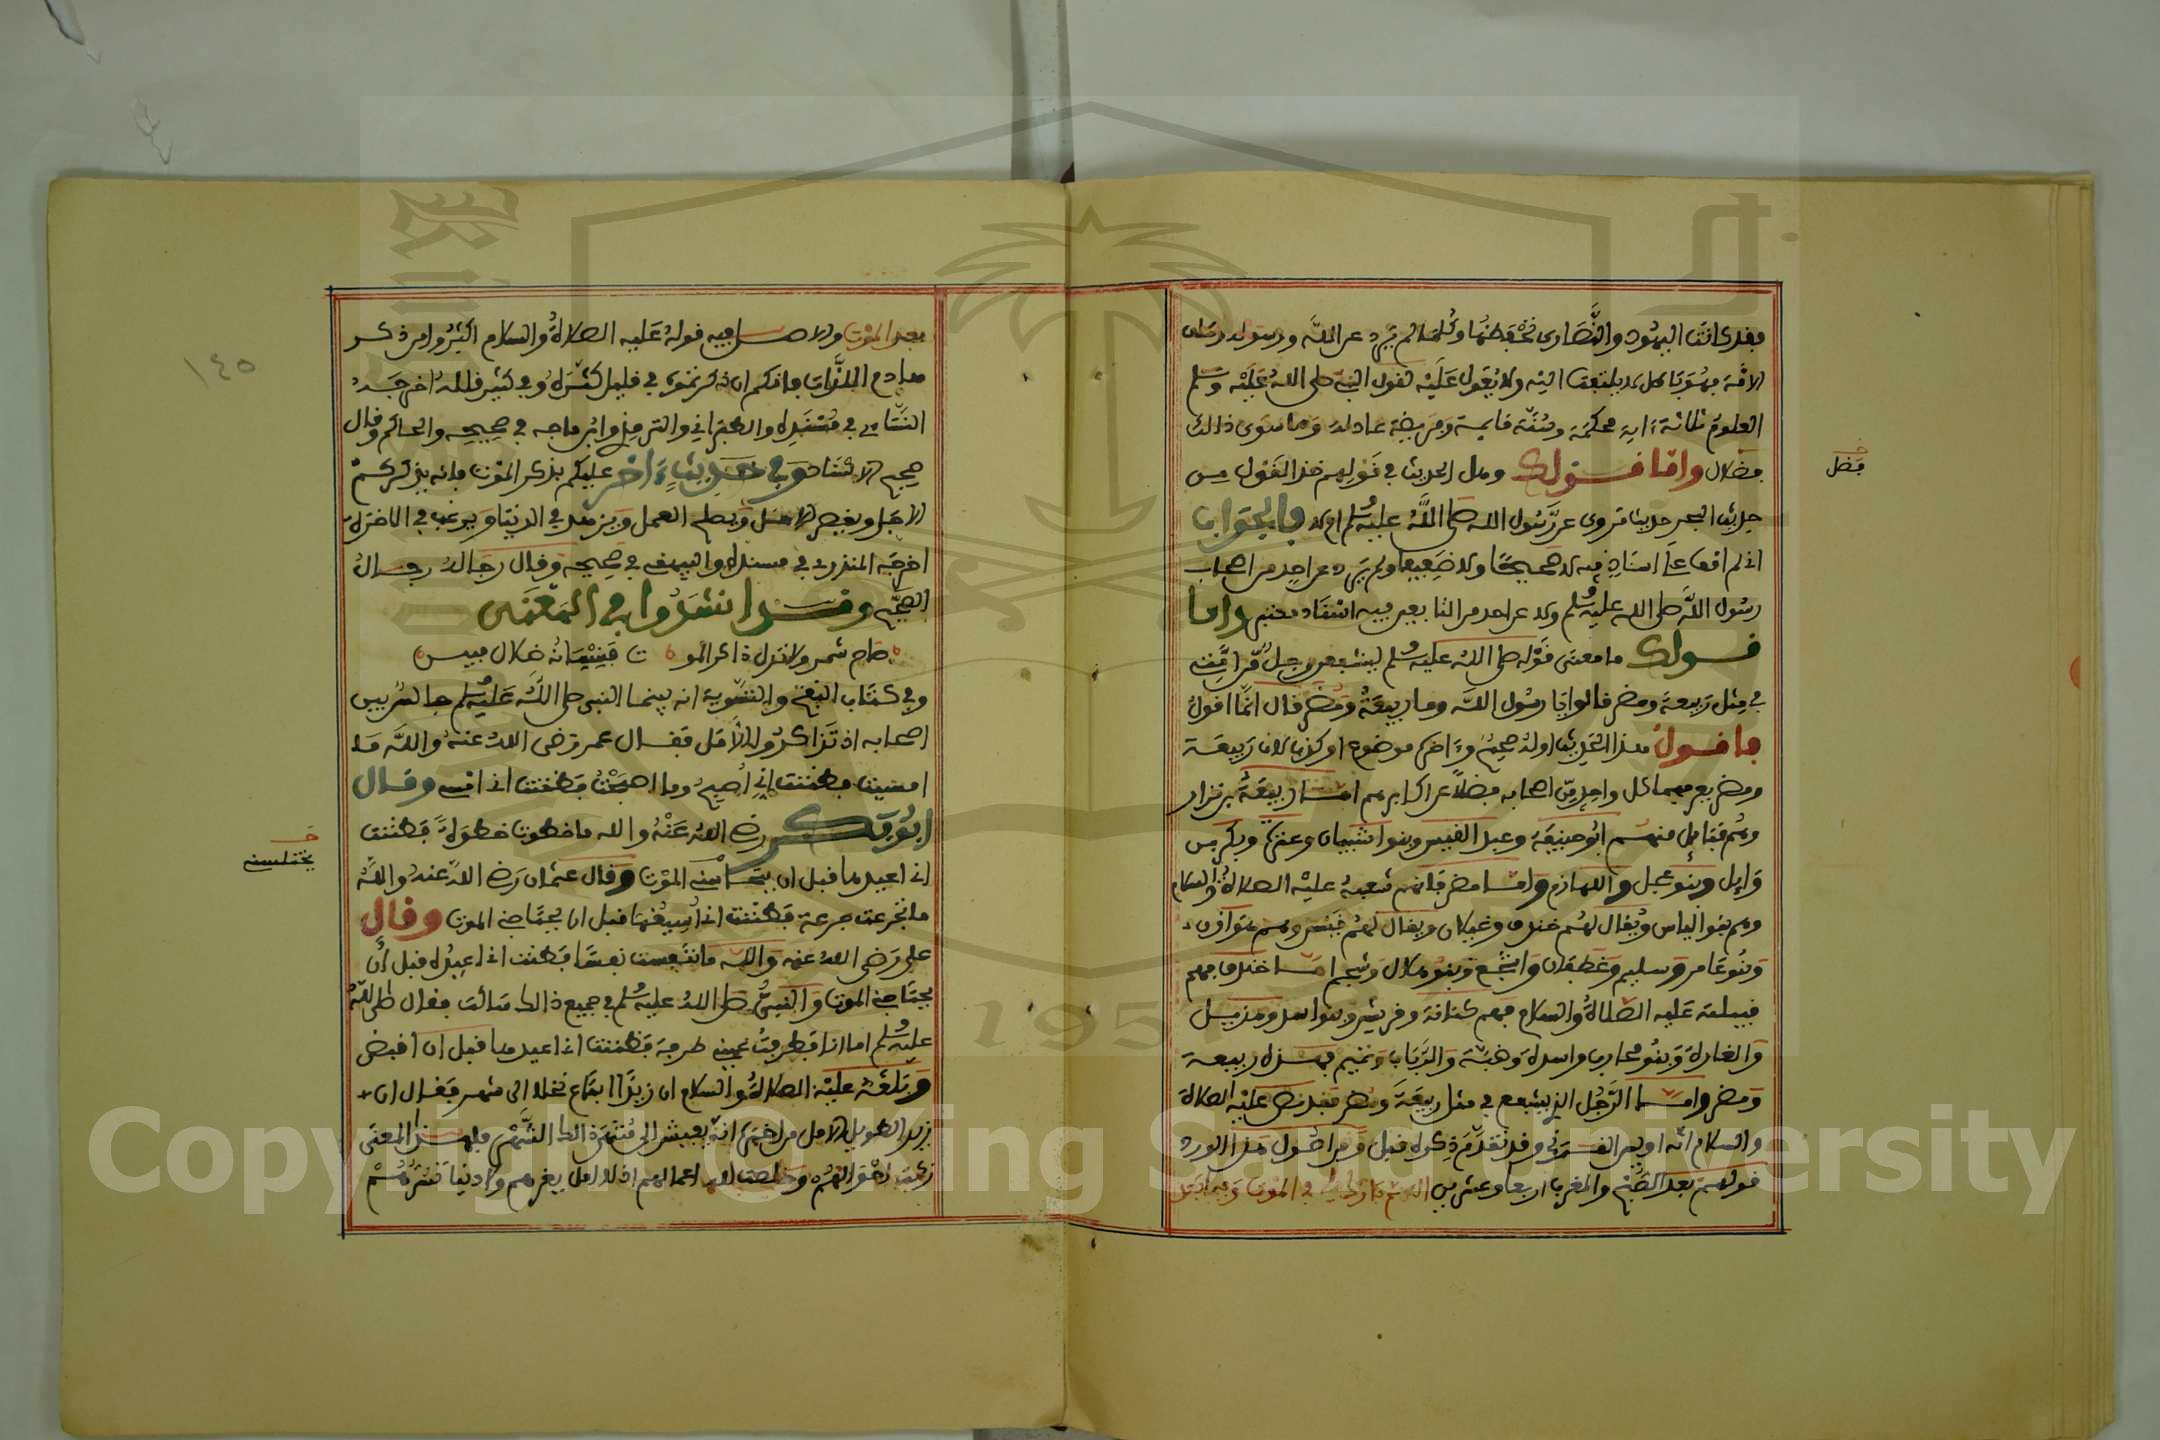 فقد كانت اليهود والنصارى تحفظها وكلما لم يرد عن الله ورسوله وسلف
الامة فهو باطل لا يلتفت اليه ولا يعول عليه لقول النبي صلى الله عليه وسلم
العلوم ثلاثة ءاية محكمة وسنة قايمة وفريضة عادلة وما سوى ذلك
فضلال واما قولك وهل الحديث في قولهم هذا القول من
حديث البحر حديث مروي عن رسول الله صلى الله عليه وسلم اولا فالجواب
اني لم اقف على اسناد فيه لا صحيحا ولا ضعيفا ولم يرد عن احد من اصحاب
رسول الله صلى الله عليه وسلم ولا عن احد من التابعين فيه اسناد واما
قولك ما معنى قوله صلى الله عليه وسلم ليشفعن رجل من امتي
في مثل ربيعة ومضر قالوا يا رسول الله وما ربيعة ومضر قال انما اقول
ما اقول هذا الحديث اوله صحيح وءاخره موضوع او كذب لان ربيعة
ومضر يعرفهما كل واحد من اصحابه فضلا عن اكابرهم اما ربيعة بن نزار
وهم قبايل منهم ابو حنيفة وعبد القيس وبنوا شيبان وعنزة وبكر بن
وايل وبنو عجل واللهازم واما مضر فانهم شعبه عليه الصلاة والسلام
وهم بنو الياس ويقال لهم خندف وغيلان ويقال لهم قيس وهم هوازن
وبنو عامر وسليم وغطفان واشجع وبنو هلال وشجم اما خندف فهم
قبيلته عليه الصلاة والسلام فهم كنانة وقريش وبنوا اسد وهذيل
والقارة وبنو محارب واسدة وضبة والرباب وتميم فهذه ربيعة
ومضر واما الرجل الذي يشفع في مثل ربيعة ومضر فقد نص عليه الصلاة
والسلام انه اويس القرني وقد تقدم ذكره قبل ومن اصول هذا الورد
قولهم بعد الصبح والمغرب اربعا وعشرين اللهم بارك لي في الموت وفيما بعد
فضل
بعد الموت والاصل فيه قوله عليه الصلاة والسلام اكثروا من ذكر
هادم اللذات فانكم ان ذكرتموه في قليل كثره وفي كثير قلله اخرجه
النسائي في مسنده والطبراني والترمذي وابن ماجه في صحيحه والحاكم وقال
صحيح الاسناد وفي حديث ءاخر عليكم بذكر الموت فانه يذكركم
الاجل ويقصر الامل ويصلح العمل ويزهد في الدنيا ويرغب في الاخرة
اخرجه المنذري في مسنده والبيهقي في صحيحه وقال رجاله رجال
الصحيح وقد انشدوا في المعنى
صاح شمر ولا تزل ذاكر المو ت فنسيانه ضلال مبين
وفي كتاب النفع والتسوية انه بينما النبي صلى الله عليه وسلم جالس بين
اصحابه اذ تذاكروا الامل فقال عمر رضي الله عنه والله ما
امسيت فظننت اني اصبح وما اصبحت فظننت اني امسي وقال
ابو بكر رضي الله عنه والله ما خطوت خطوة فظننت
اني اعيدها قبل ان يختلسني الموت وقال عثمان رضي الله عنه والله
ما تجرعت جرعة فظننت اني اسيغها قبل ان يجتاحني الموت وقال
علي رضي الله عنه والله ما تنفست نفسا فظننت اني اعيده قبل ان
يجتاحني الموت والنبي صلى الله عليه وسلم في جميع ذالك ساكت فقال صلى الله
عليه وسلم اما انا فطرفت عيني طرفة فظننت اني اعيدها قبل ان اقبض
وبلغه عليه الصلاة والسلام ان زيدا ابتاع نخلا الى شهر فقال ان
زيد الطويل الامل من اخبره انه يعيش الى منتهى ذالك الشهر فلهذا المعنى
وخلصت لله اعمالهم اذ لا امل يغرهم ولا دنيا تضرهم
يختلسني
١٤٥
Copyright © King Saud University
1957